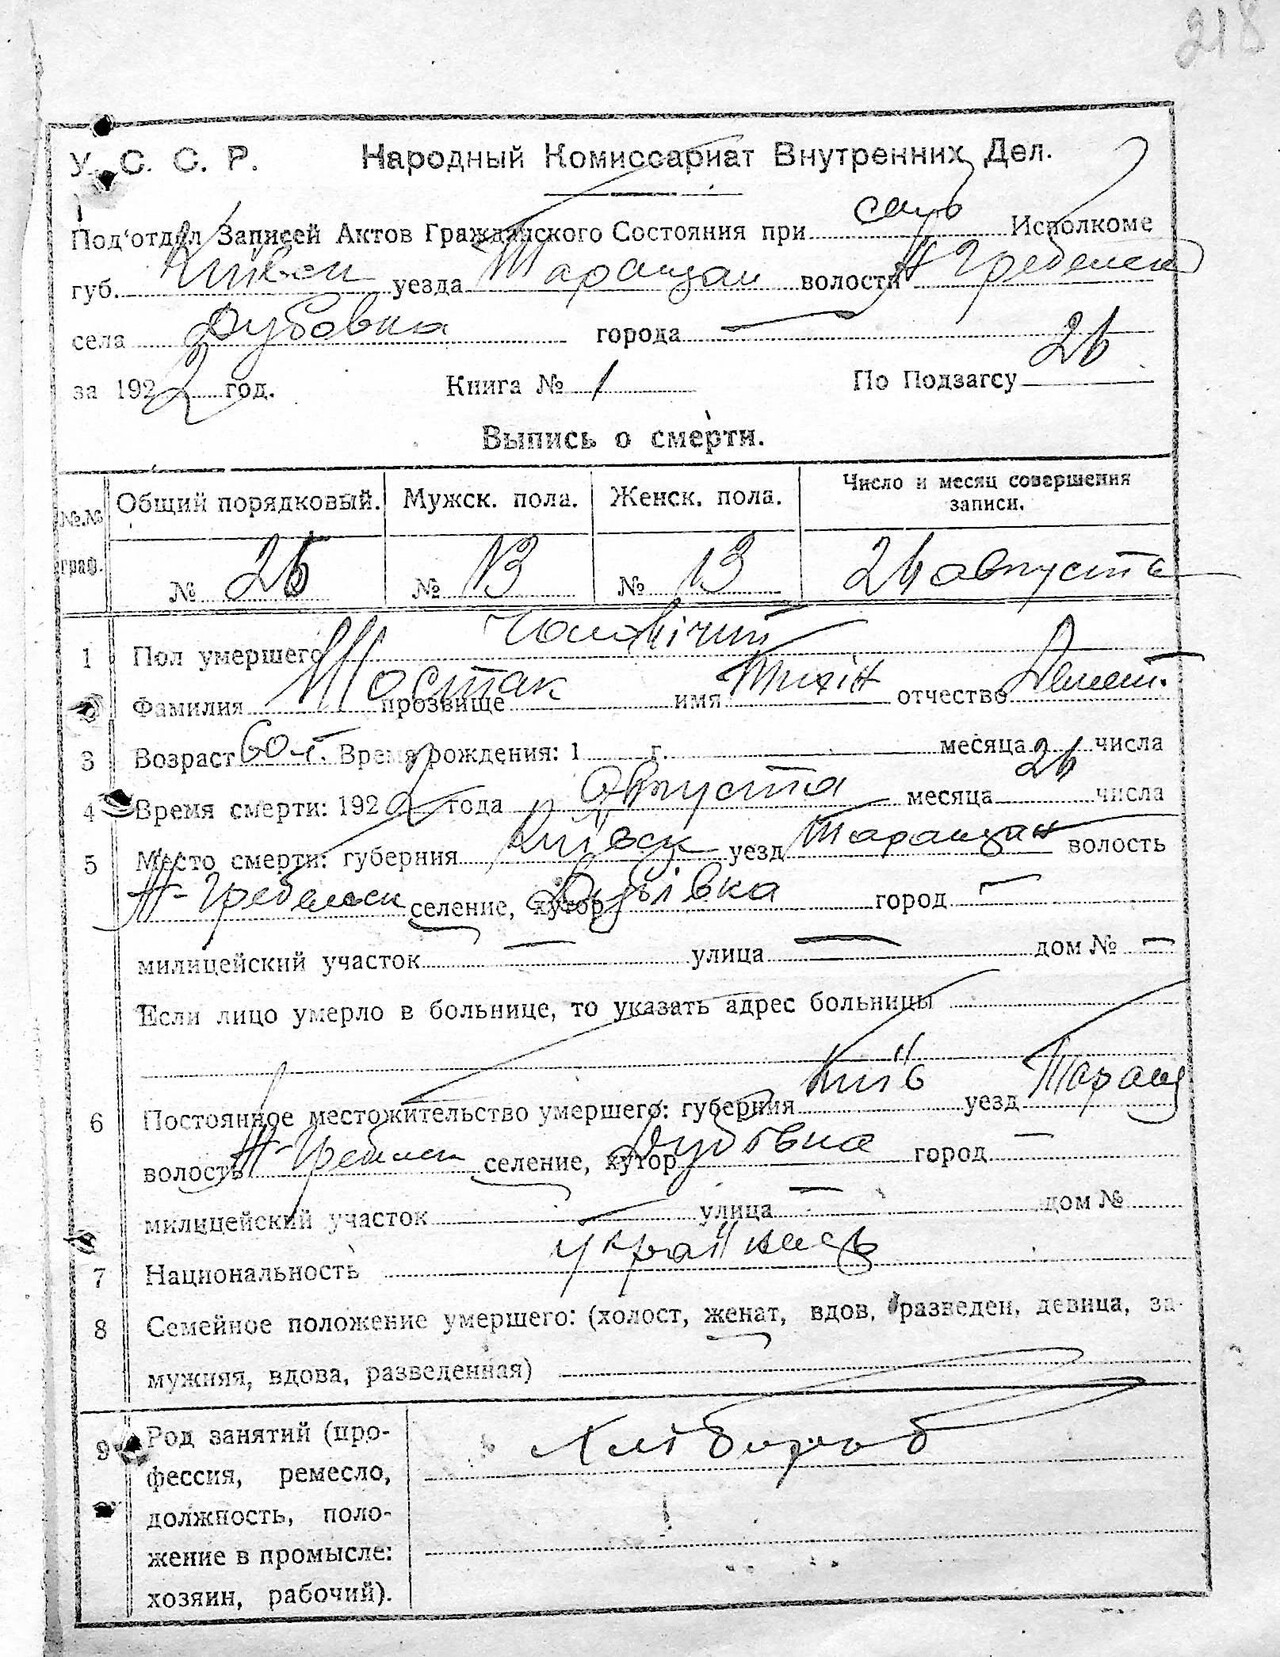 218
У. С. С. Р. Народный Комиссариат Внутренних Дел.
Под'отдел Записей Актов Гражданского Состояния при Исполкоме
губ. Київск уезда Таращан волости Н Гребенск
села Дубовка города —
за 1922 год. Книга № 1 По Подзагсу 26
Выпись о смерти.
№.№ граф. Общий порядковый. Мужск. пола. Женск. пола. Число и месяц совершения записи.
№ 26 № 13 № 13 26 августа
1 Пол умершего Чоловічий
Фамилия Шостак прозвище имя Тихін отчество
3 Возраст 60 л. Время рождения: 1 г. месяца числа
4 Время смерти: 1922 года августа месяца 26 числа
5 Место смерти: губерния Київск уезд Таращан волость
Н-Гребенск селение, хутор Дубівка город —
милицейский участок — улица — дом № —
Если лицо умерло в больнице, то указать адрес больницы
6 Постоянное местожительство умершего: губерния Київ уезд Таращ
волость Н-Гребенск селение, хутор Дубовка город —
милицейский участок улица — дом №
7 Национальность українець
8 Семейное положение умершего: (холост, женат, вдов, разведен, девица, за-
мужняя, вдова, разведенная)
9 Род занятий (про- Хлібороб
фессия, ремесло,
должность, поло-
жение в промысле:
хозяин, рабочий).